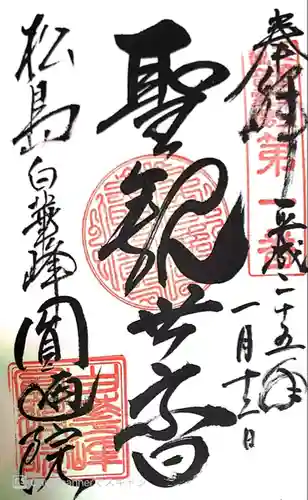 奉拝
第一番
平成二十五年
一月十三日
聖観世音
松島 白華峰 圓通院